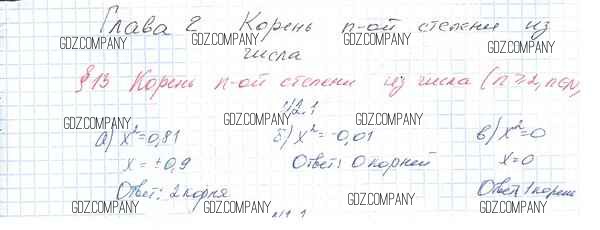 Глава 2 Корень n-ой степени из
GDZ.COMPANY GDZ.COMPANY GDZ.COMPANY GDZ.COMPANY
числа
§ 13 Корень n-ой степени из числа (n≥2, n∈N,
112.1
GDZ.COMPANY GDZ.COMPANY GDZ.COMPANY
а) x²=0,81 б) x²=-0,01 в) x²=0
x=±0,9 Ответ: 0 корней x=0
Ответ: 2 корня Ответ 1 корень
GDZ.COMPANY GDZ.COMPANY GDZ.COMPANY GDZ.COMPANY